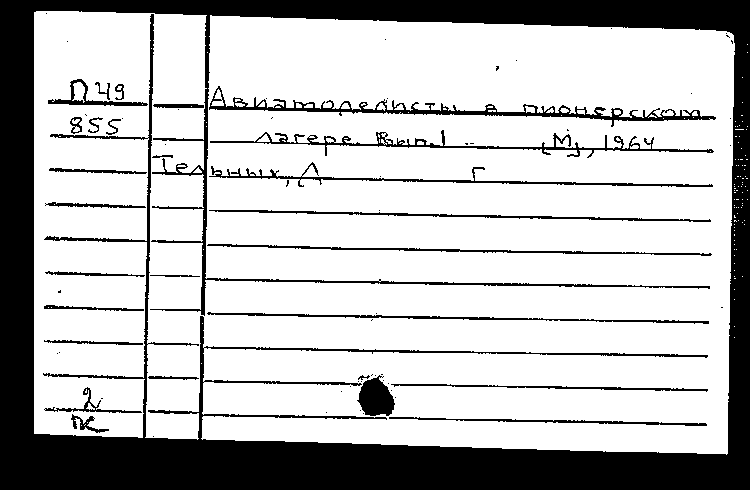 П49 Авиамоделисты в пионерском
855 лагере. Вып.1 .. [М], 1964
Тельных, Л Г
2
пс